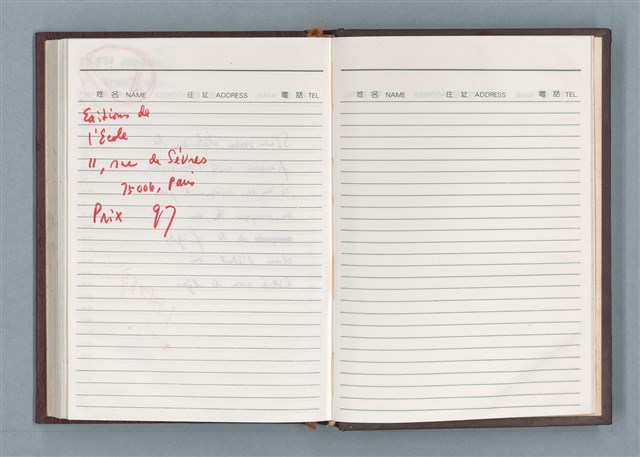 姓名 NAME 住址 ADDRESS 電話 TEL
Editions de
l'Ecole
11, rue de Sévres
75006, Paris
Prix 97
姓名 NAME 住址 ADDRESS 電話 TEL.